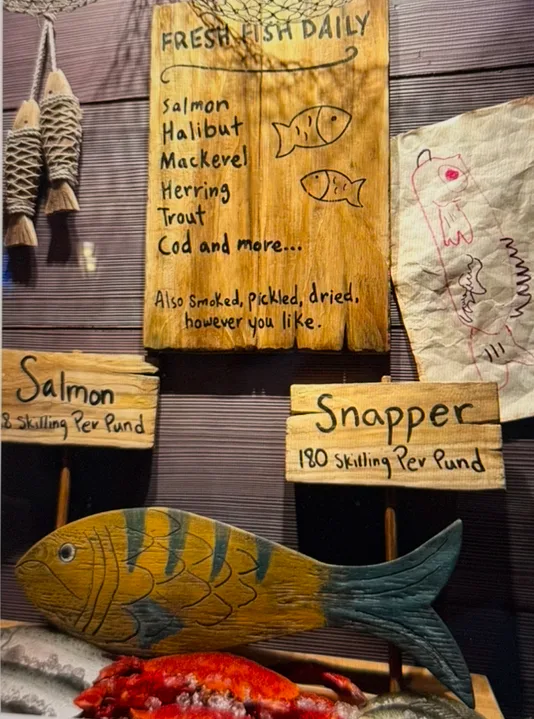 FRESH FISH DAILY
Salmon
Halibut
Mackerel
Herring
Trout
Cod and more...
Also smoked, pickled, dried,
however you like.
Salmon
8 Skilling Per Pund
Snapper
180 Skilling Per Pund